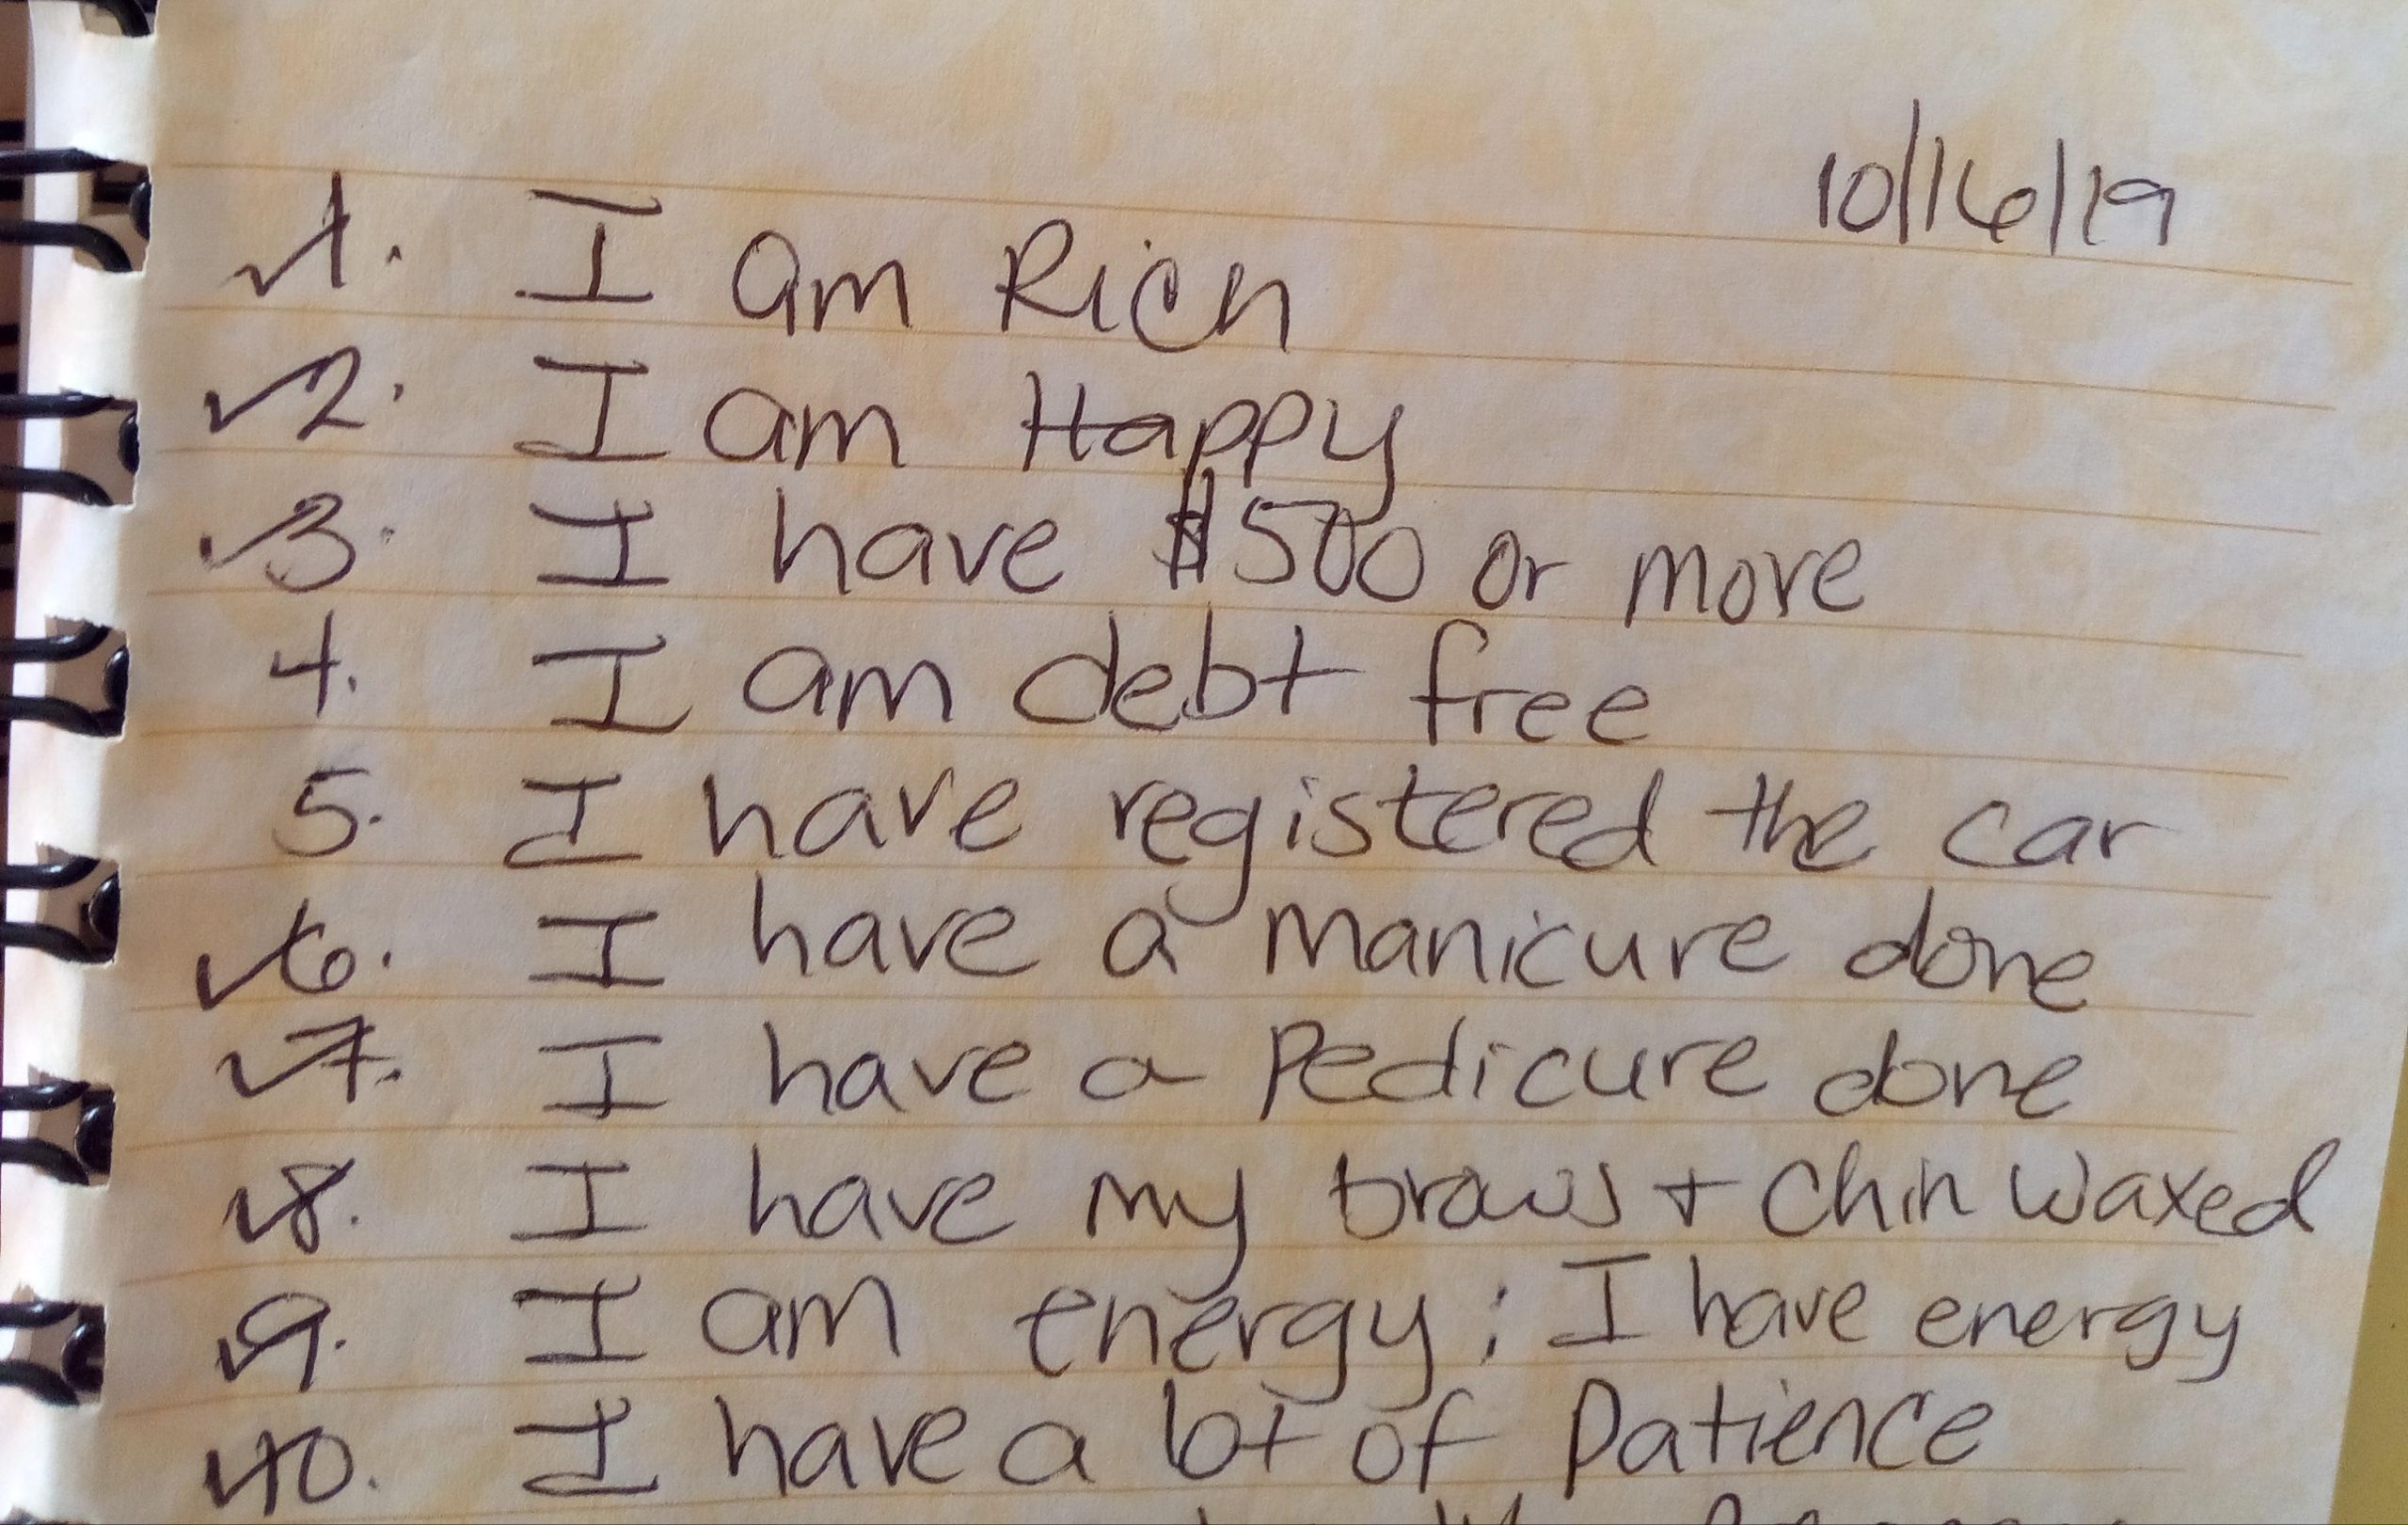 10/16/19
✓1. I am Rich
✓2. I am Happy
✓3. I have $500 or more
4. I am debt free
5. I have registered the car
✓6. I have a manicure done
✓7. I have a Pedicure done
✓8. I have my brows + Chin waxed
✓9. I am energy; I have energy
✓10. I have a lot of Patience